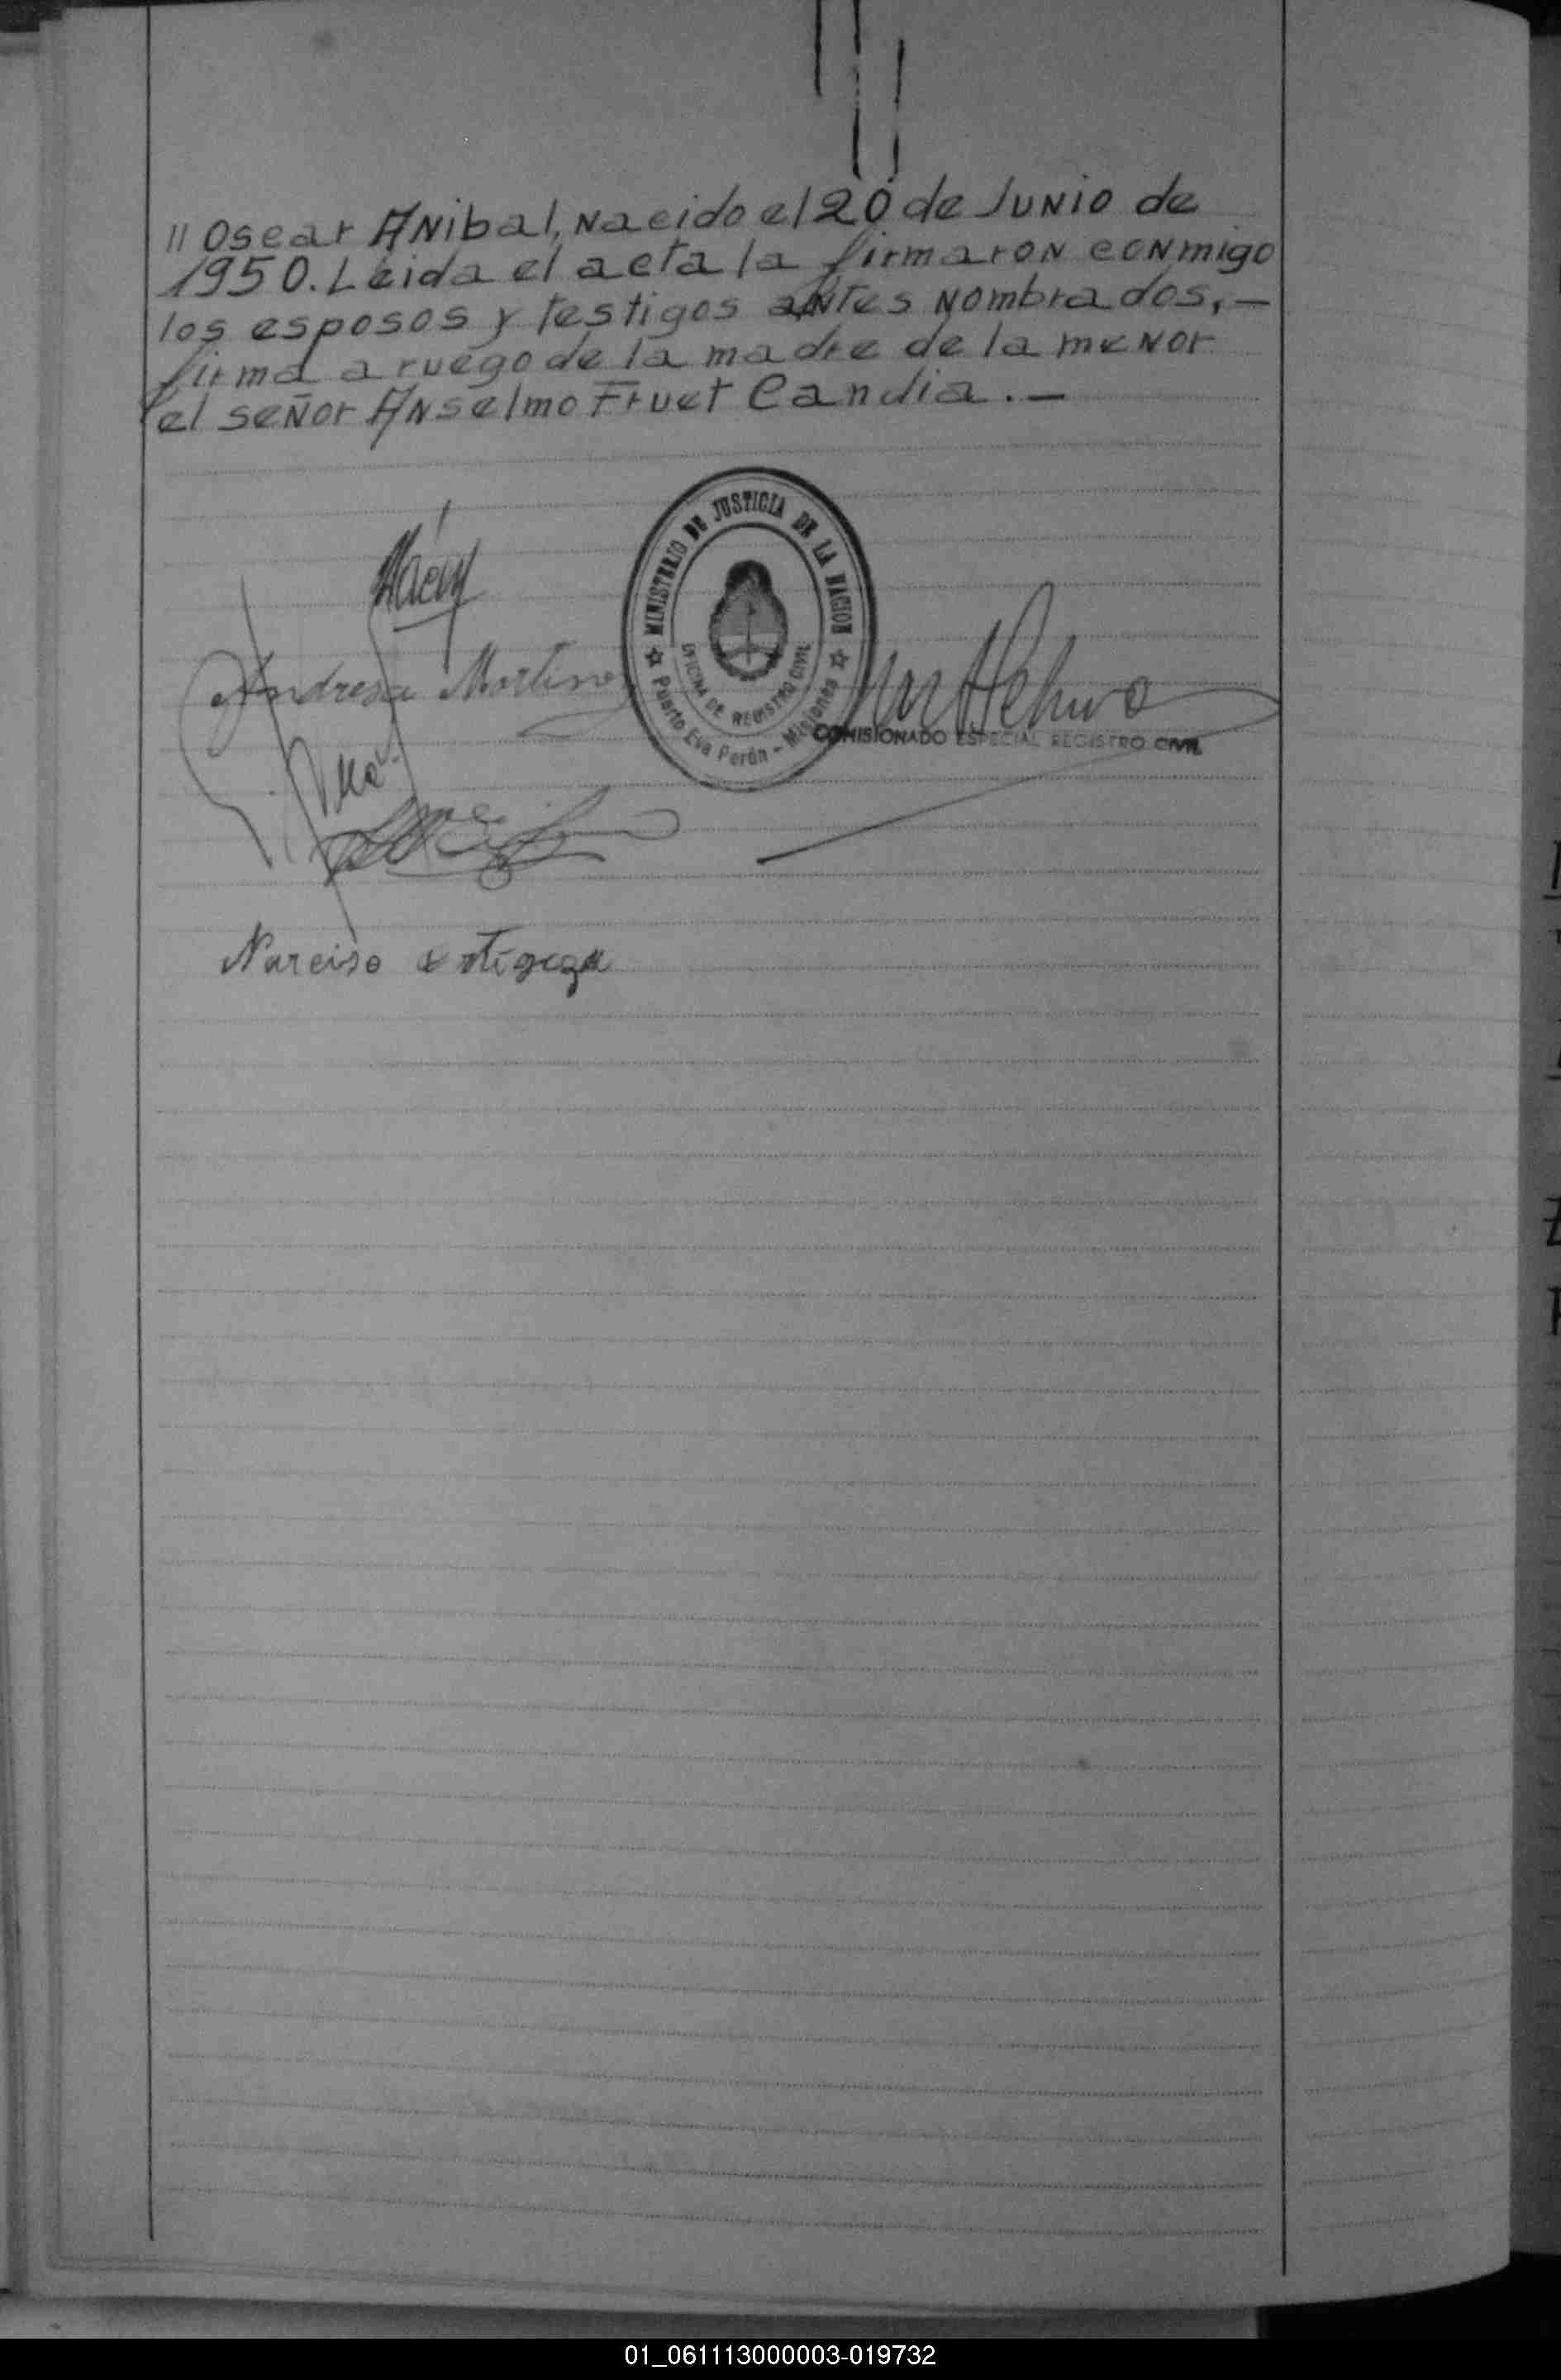 // Oscar Anibal, Nacido el 20 de Junio de
1950. Leida el acta la firmaron conmigo
los esposos y testigos antes Nombrados, —
firma a ruego de la madre de la menor
el señor Anselmo Fruet Candia. —
MINISTERIO DE JUSTICIA DE LA NACION
OFICINA DE REGISTRO CIVIL
Puerto Eva Perón - Misiones
Andresa Martine
COMISIONADO ESPECIAL REGISTRO CIVIL
Narciso
01_061113000003-019732